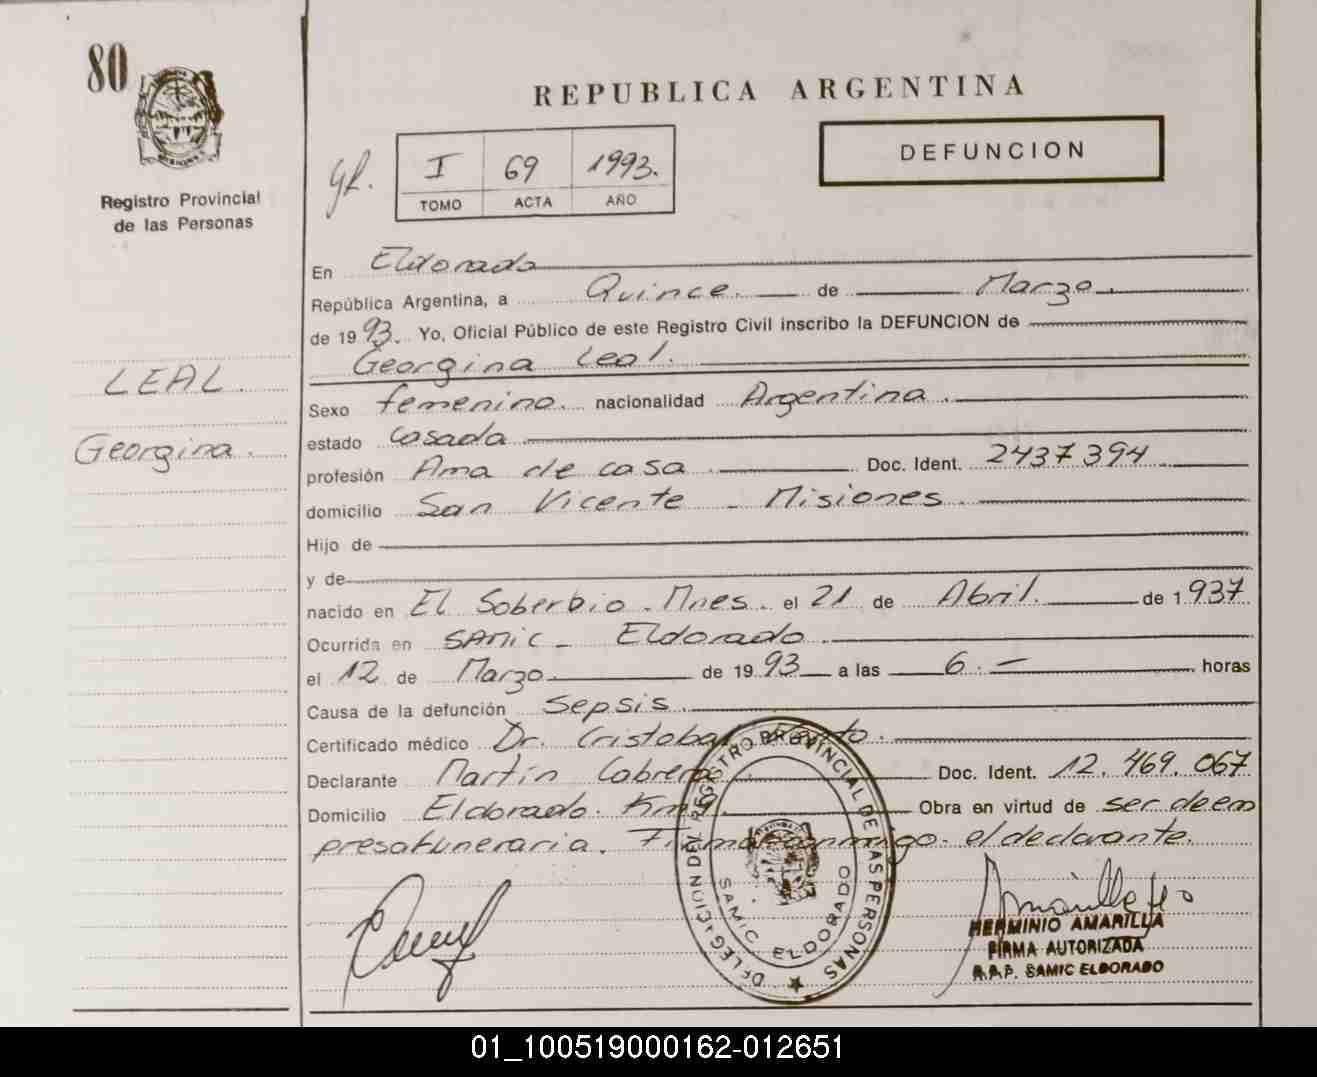 80
REPUBLICA ARGENTINA
Registro Provincial
de las Personas
I 69 1993.
TOMO ACTA AÑO
DEFUNCION
En Eldorado
República Argentina, a Quince. de Marzo.
de 1993. Yo, Oficial Público de este Registro Civil inscribo la DEFUNCION de
Georgina Leal.
LEAL.
Georgina.
Sexo femenino. nacionalidad Argentina.
estado Casada
profesión Ama de casa. Doc. Ident. 2437394
domicilio San Vicente - Misiones.
Hijo de
y de
nacido en El Soberbio. Mnes. el 21 de Abril. de 1937
Ocurrida en SAMIC - Eldorado.
el 12 de Marzo de 1993 a las 6. — horas
Causa de la defunción Sepsis.
Certificado médico Dr. Cristobal
Declarante Martín Cabrera Doc. Ident. 12.469.067
Domicilio Eldorado. Km Obra en virtud de ser de em
presa funeraria. Firma conmigo el declarante.
DELEGACION DEL REGISTRO PROVINCIAL DE LAS PERSONAS
SAMIC ELDORADO
HERMINIO AMARILLA
FIRMA AUTORIZADA
R.P.P. SAMIC ELDORADO
01_100519000162-012651